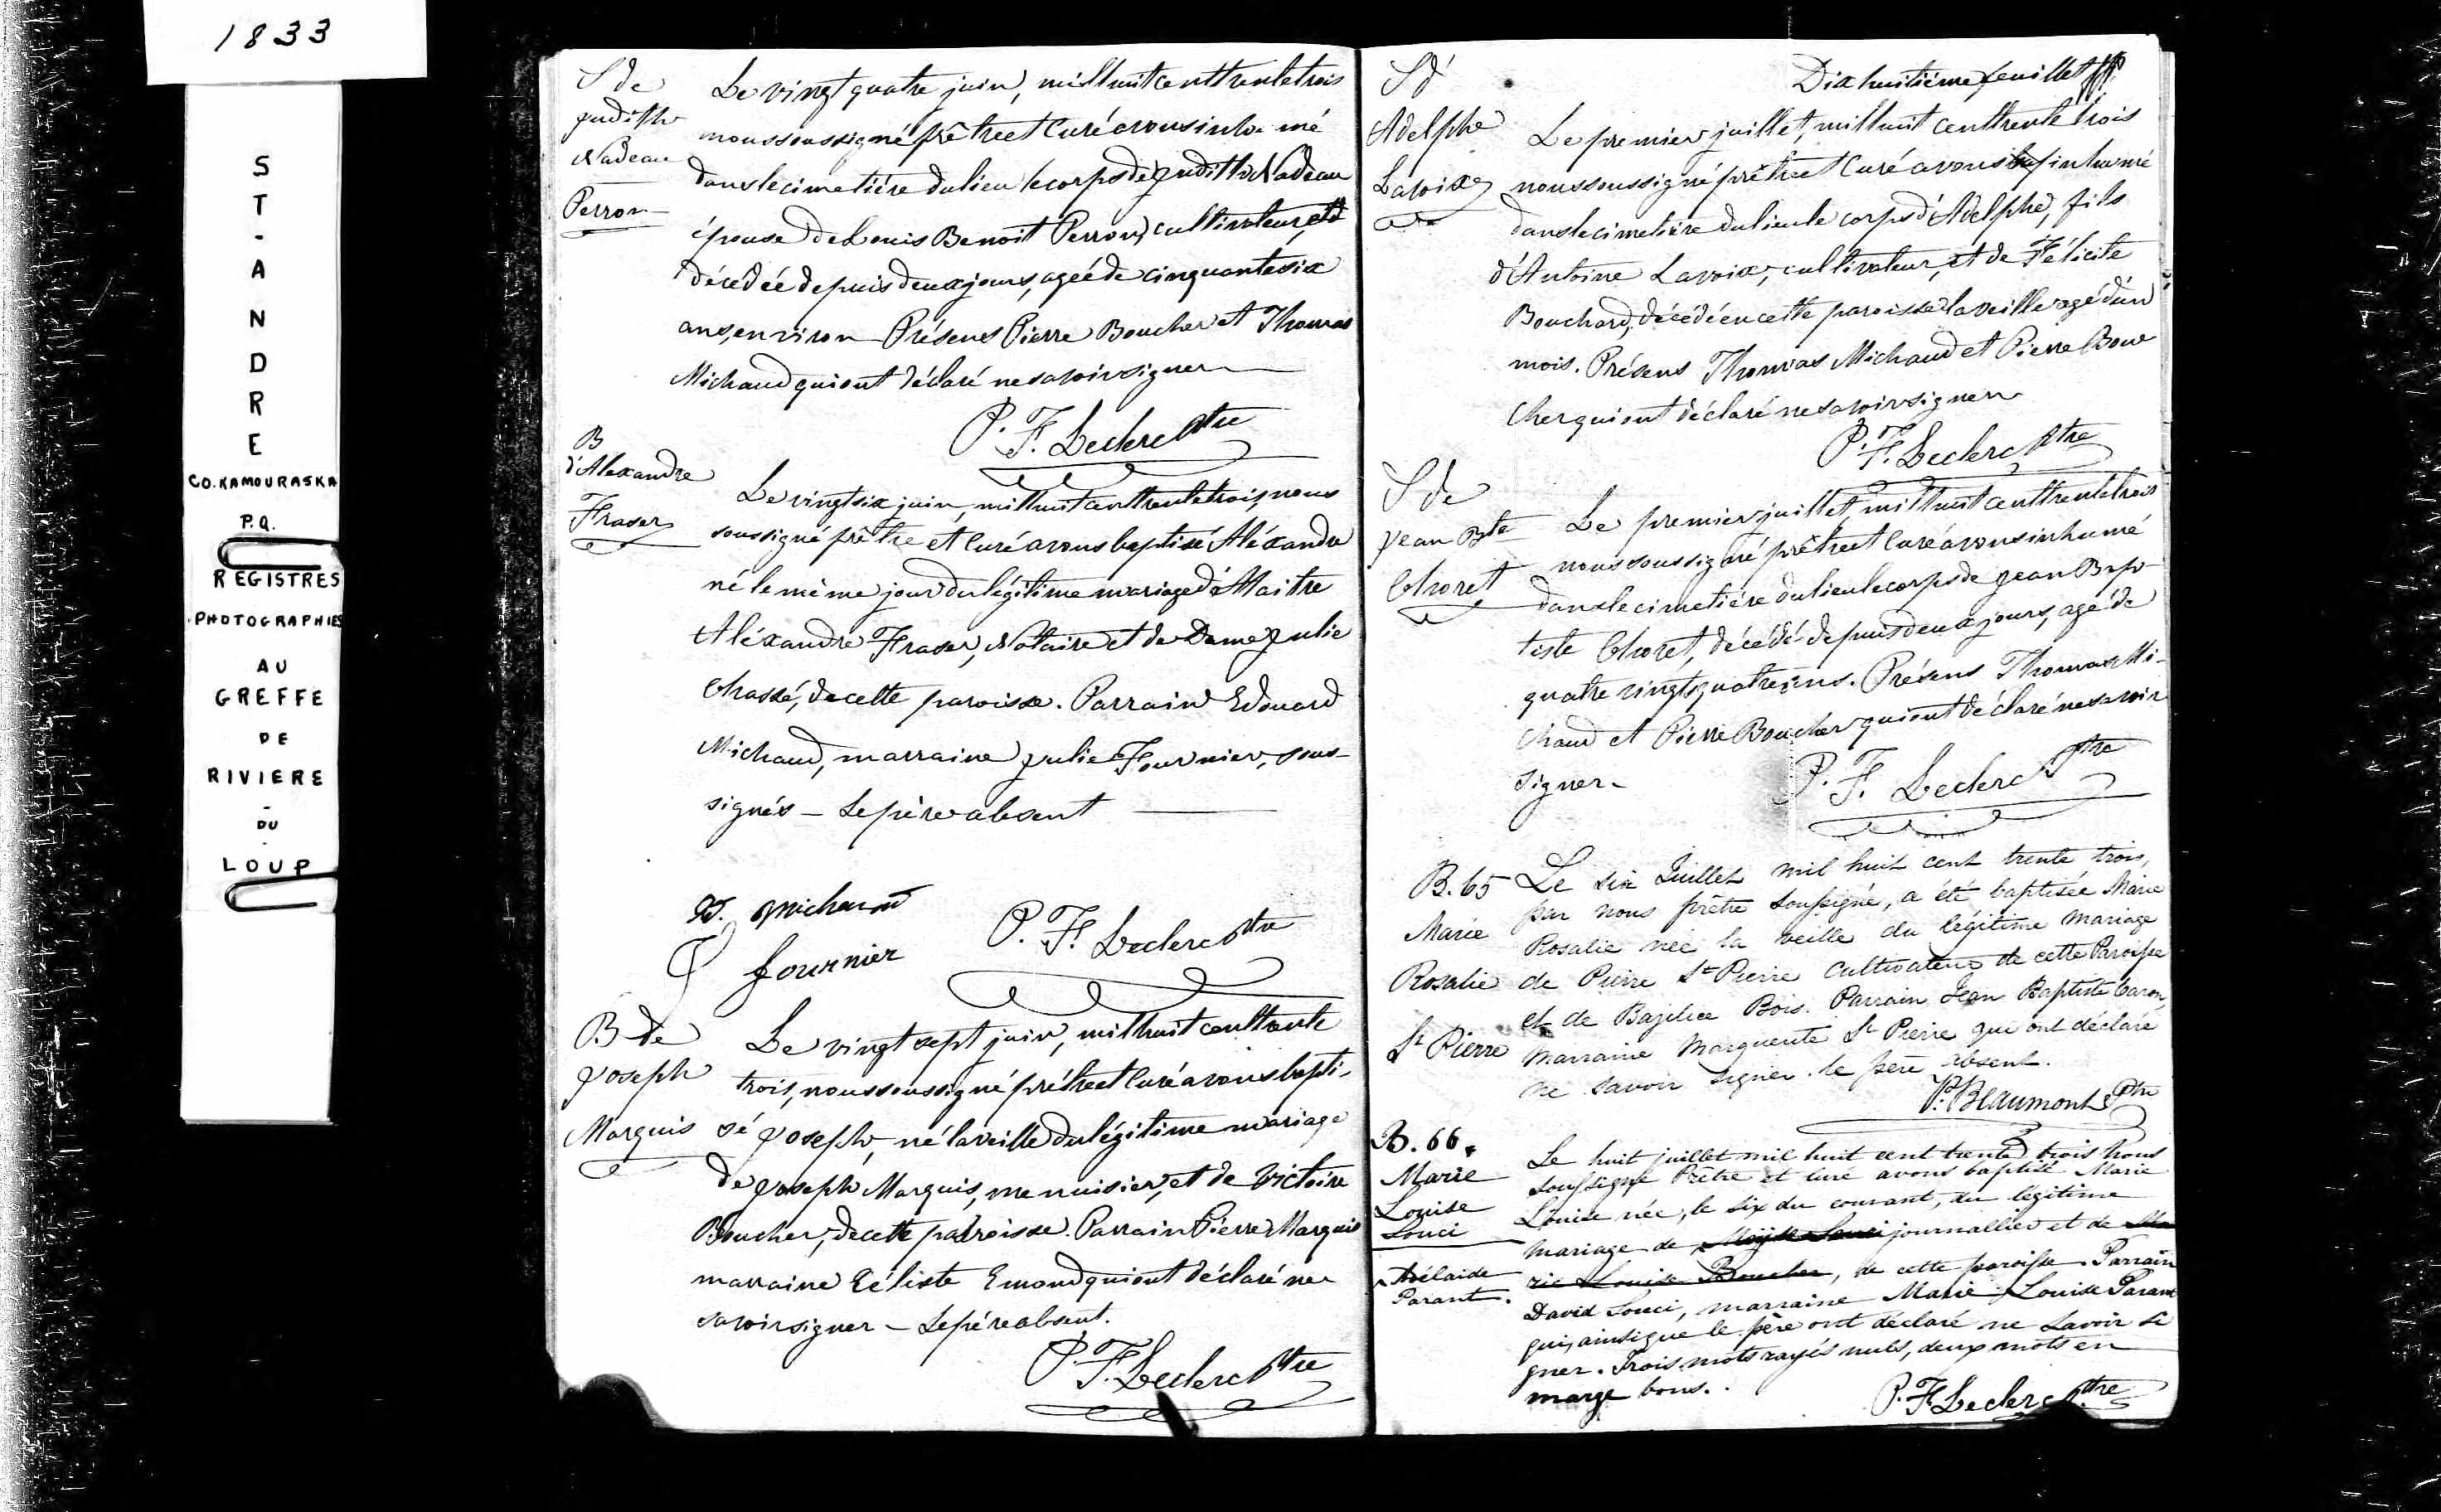 1833
ST-ANDRE
CO. KAMOURASKA
P.Q.
REGISTRES
PHOTOGRAPHIES
AU
GREFFE
DE
RIVIERE
-
DU
-
LOUP
S de
Judith
Nadeau
Perron
Le vingt quatre juin, mil huit cent trente trois
nous soussigné prêtre et Curé avons inhumé
dans le cimetière du lieu le corps de Judith Nadeau
épouse de Louis Benoit Perron, cultivateur,
décédée depuis deux jours, agée de cinquante six
ans, environ Présens Pierre Boucher et Thomas
Michaud qui ont déclaré ne savoir signer
P. F. Leclerc Ptre
B
d'Alexandre
Fraser
Le vingt six juin, mil huit cent trente trois, nous
soussigné prêtre et Curé avons baptisé Aléxandre
né le même jour du légitime mariage de Maitre
Aléxandre Fraser, Notaire et de Dame Julie
Chassé, de cette paroisse. Parrain Edouard
Michaud, marraine Julie Fournier, sous-
signés – Le père absent
Michaud
P. F. Leclerc Ptre
J fournier
B de
Joseph
Marquis
Le vingt sept juin, mil huit cent trente
trois, nous soussigné prêtre et Curé avons bapti-
sé Joseph, né la veille du légitime mariage
de Joseph Marquis, menuisier, et de Victoire
Boucher, de cette paroisse. Parrain Pierre Marquis
marraine Céliste Emond qui ont déclaré ne
savoir signer – Le père absent.
P. F. Leclerc Ptre
Dix huitième feuillet
S d'
Adelphe
Lavoix
Le premier juillet, mil huit cent trente trois
nous soussigné prêtre et Curé avons inhumé
dans le cimetière du lieu le corps d'Adelphe, fils
d'Antoine Lavoix, cultivateur, et de Félicité
Bouchard, décédé en cette paroisse la veille agé d'un
mois. Présens Thomas Michaud et Pierre Bou
cher qui ont déclaré ne savoir signer
P. F. Leclerc Ptre
S de
Jean Bte
Choret
Le premier juillet, mil huit cent trente trois
nous soussigné prêtre et Curé avons inhumé
dans le cimetière du lieu le corps de Jean Bap-
tiste Choret, décédé depuis deux jours, agé de
quatre vingt quatre ans. Présens Thomas Mi-
chaud et Pierre Boucher qui ont déclaré ne savoir
signer-
P. F. Leclerc Ptre
B. 65
Marie
Rosalie
St Pierre
Le six Juillet mil huit cent trente trois,
par nous prêtre soussigné, a été baptisée Marie
Rosalie née la veille du légitime mariage
de Pierre St Pierre Cultivateur de cette Paroisse
et de Bazilice Bois. Parrain Jean Baptiste Caron,
Marraine Marguerite St Pierre qui ont déclaré
ne savoir signer. le père absent.
P. Beaumont Ptre
B. 66.
Marie
Louise
Souci
Adélaide
Parant.
Le huit juillet mil huit cent trente trois Nous
soussigné Prêtre et curé avons baptisé Marie
Louise née, le six du courant, du légitime
mariage de Moyse Souci journallier et de Ma
rie Louise Boucher, de cette paroisse. Parrain
David Souci, marraine Marie Louise Parant
qui, ainsi que le père ont déclaré ne savoir si
gner. Trois mots rayés nuls, deux mots en
marge bons.
P. F. Leclerc Ptre